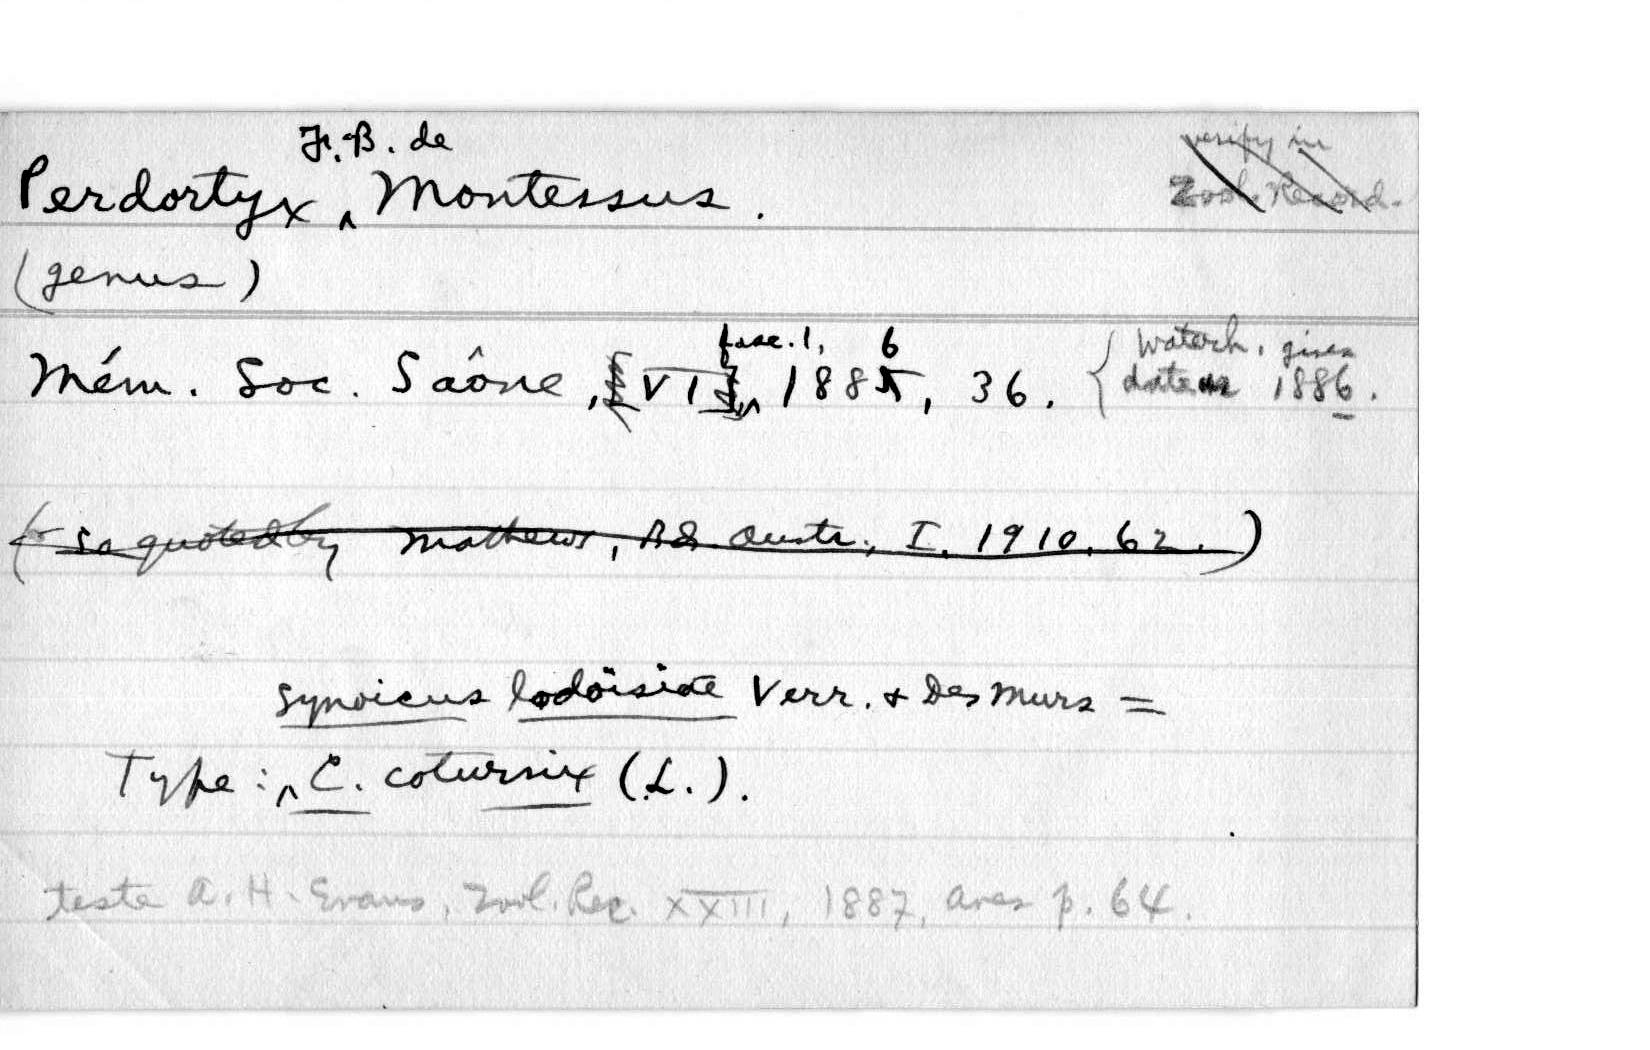 F. B. de
Perdortyx ‸ Montessus.
verify in
Zool. Record.
(genus)
fasc. 1, 6
Mém. Soc. Saône, [VI], 1885, 36.
{ Waterh. gives
date as 1886.
(so quoted by Mathews, B Austr., I, 1910, 62.)
Synoicus lodoisiae Verr. & Des Murs =
Type: ‸ C. coturnix (L.).
teste A. H. Evans, Zool. Rec. XXIII, 1887, Aves p. 64.